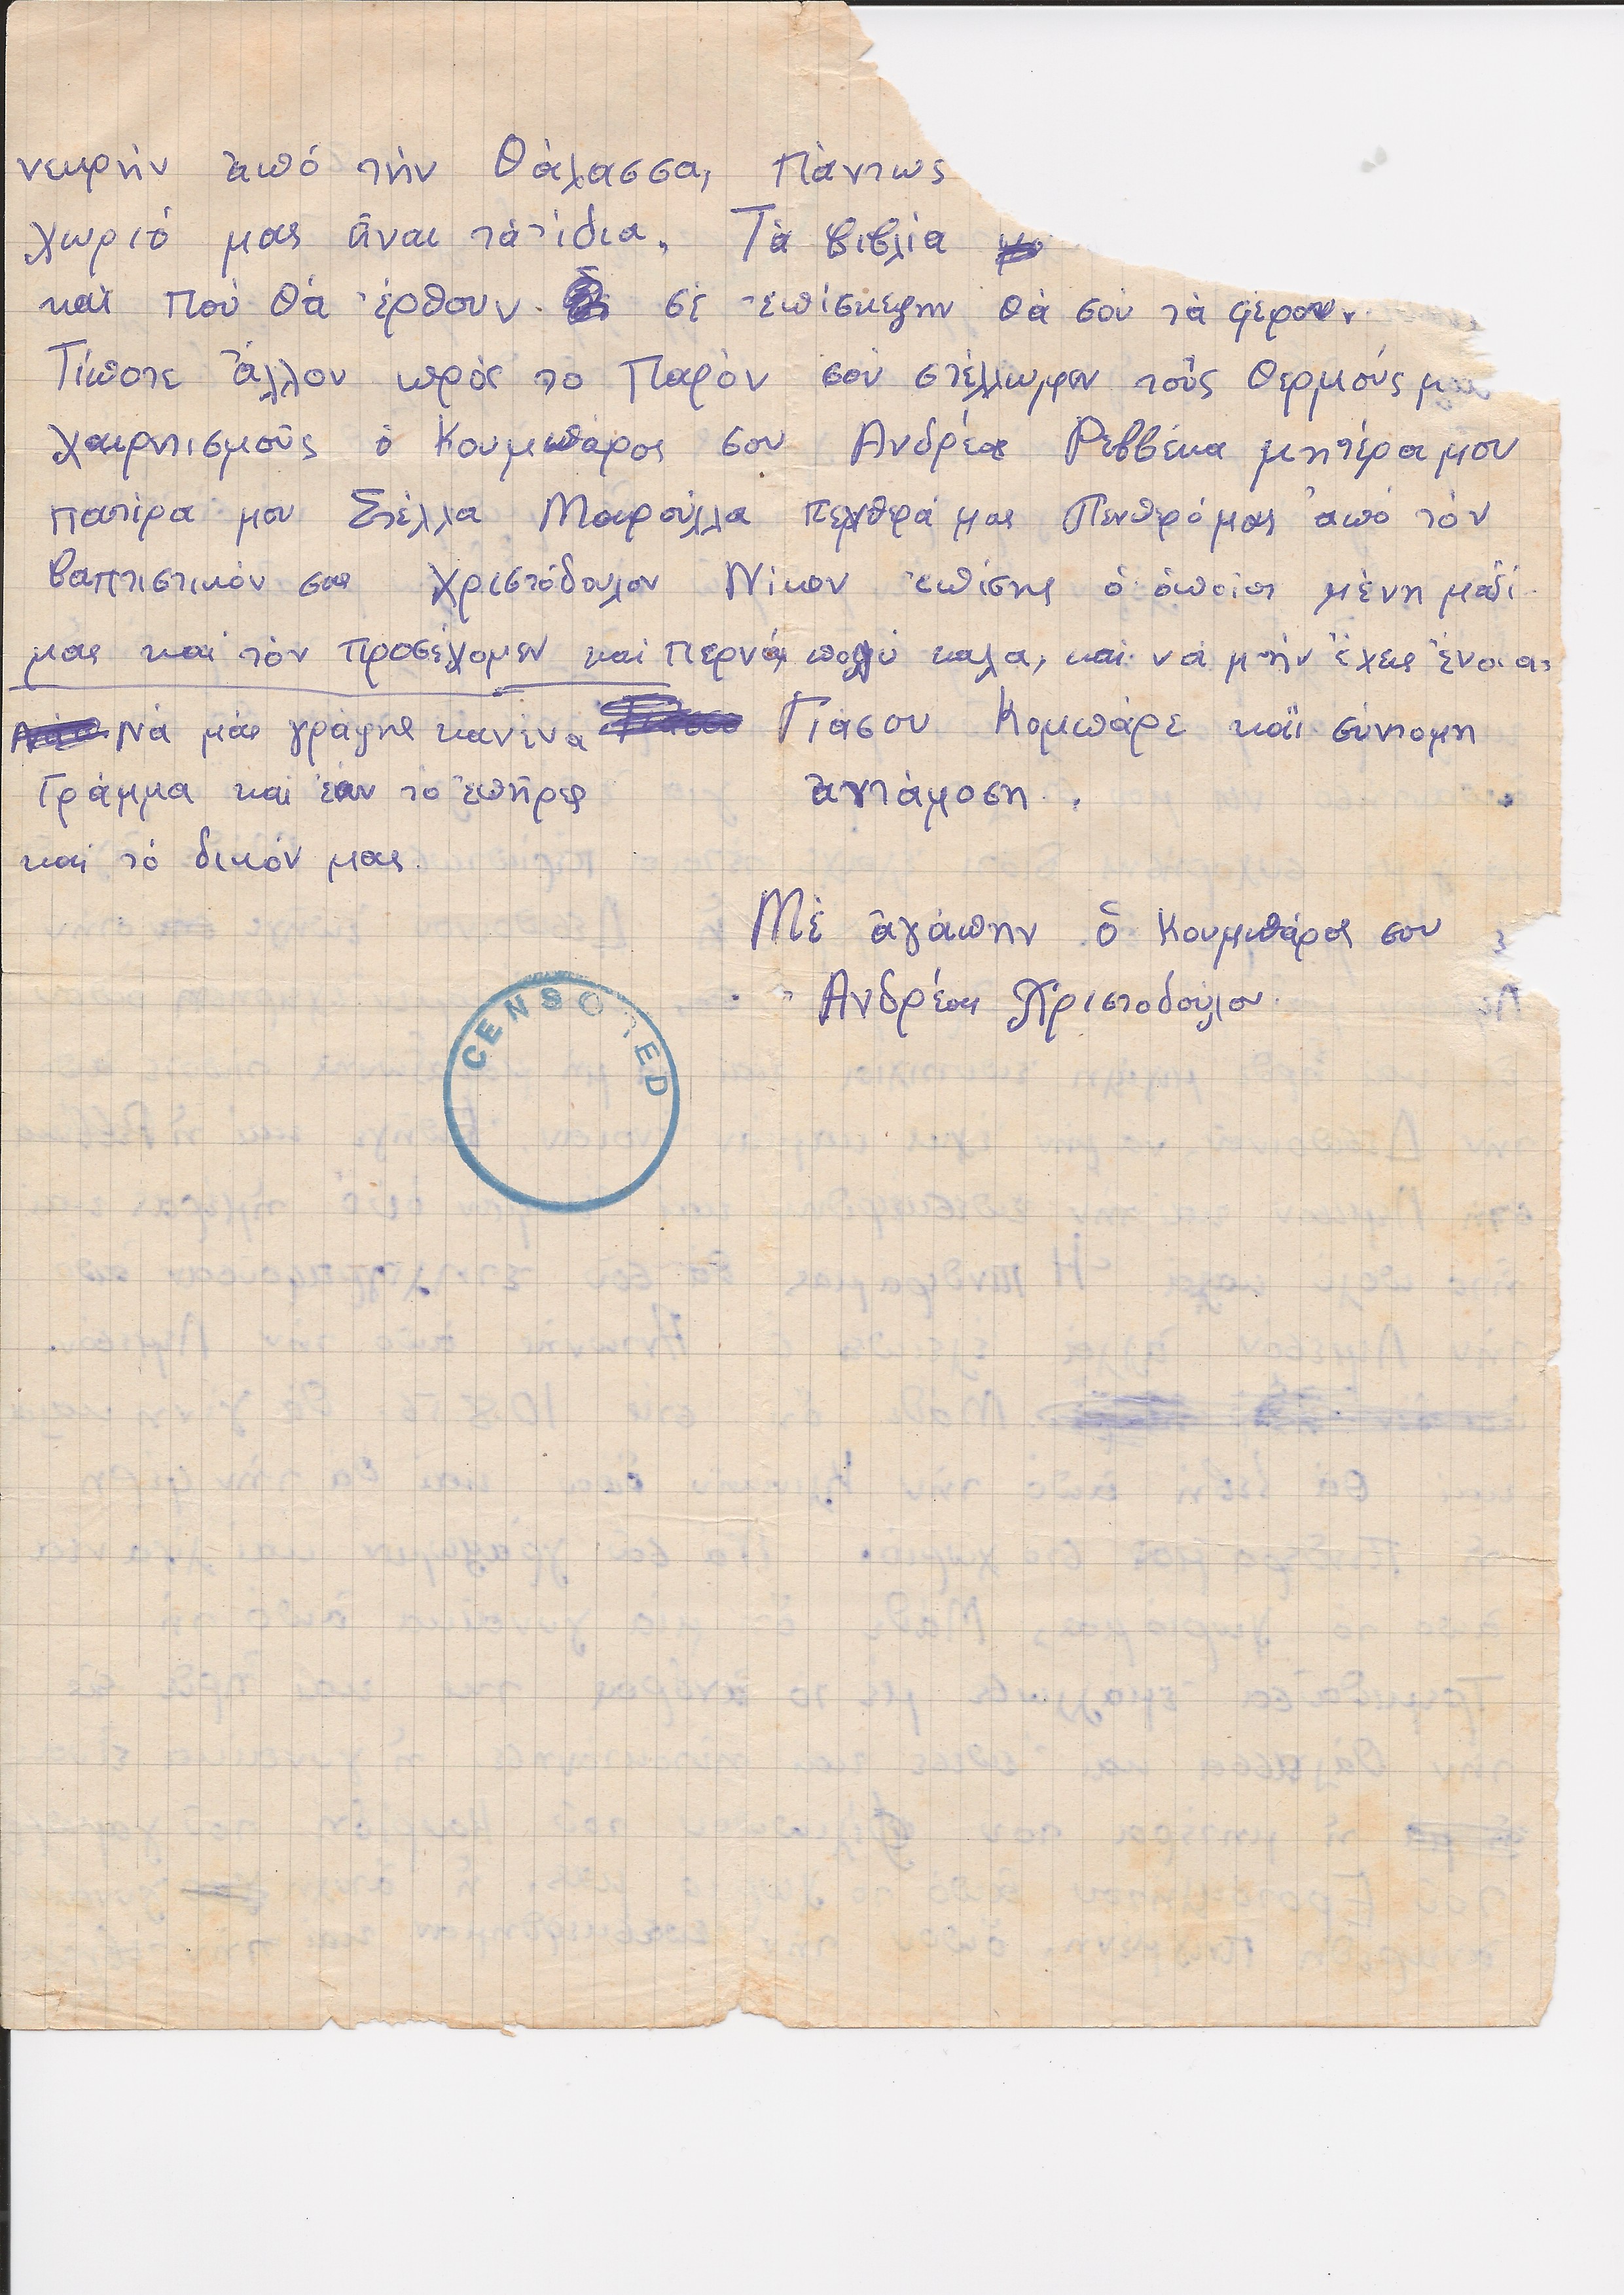 νεκρήν ἀπό τήν θάλασσα, Πάντως
χωριό μας ἦναι τά ἴδια. Τά βιβλία
καί Πού θά ἔρθουν σέ ἐπίσκεψην θά σου τά φέρουν.
Τίποτε ἄλλον πρός το Παρόν σου στέλλωμεν τούς θερμούς μας
χαιρητισμούς ὁ Κουμπάρος σου Ανδρέας Ρεββέκα μητέρα μου
πατέρα μου Στέλλα Μαρούλλα πενθερά μας Πενθερό μας ἀπό τόν
βαπτιστικόν σας Χριστόδουλον Νίκον ἐπίσης ὁ ὁποίος μένη μαζί
μας καί τόν προσέχομεν καί περνᾶ πολύ καλα, και νά μήν ἔχεις ἔνοια,
Νά μᾶς γράψης κανένα Γιάσου Κομπάρε καί σύντομη
Γράμμα καί ἐάν το ἐπῆρες ἀντάμοση.
καί τό δικόν μας.
Μέ ἀγάπην ὁ Κουμπάρος σου
Ανδρέας Χριστοδούλου
CENSORED